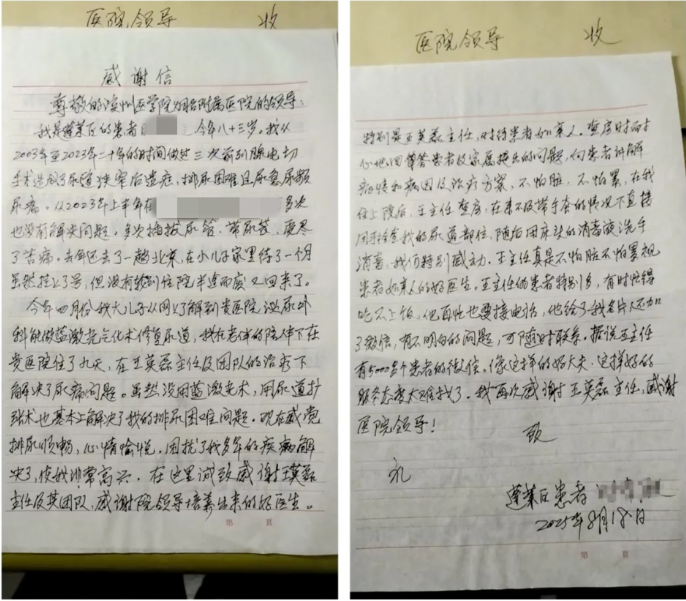 医院领导 收
感谢信
尊敬的滨州医学院烟台附属医院的领导:
我是蓬莱区的患者 今年八十三岁。我从
2003年至2023年二十年的时间做过三次前列腺电切
手术造成了尿道狭窄后遗症,排尿困难且尿急尿频
尿痛。从2023年上半年在 多次
也没有解决问题。多次插拔尿管、带尿袋,受尽
了苦痛。去年还去了一趟北京,在小儿子家里待了一个月
虽然挂上了号,但没有给到住院半途而废又回来了。
今年四月份我大儿子从网上了解到贵医院泌尿外
科能做蓝激光气化术修复尿道,我在老伴的陪伴下在
贵医院住了九天,在王英磊主任及团队的治疗下
解决了尿痛问题。虽然没用蓝激光术,用尿道扩
张术也基本上解决了我的排尿困难问题。现在感觉
排尿顺畅,心情愉悦,困扰了我多年的疾病解
决了,使我非常高兴。在这里诚致感谢王英磊
主任及其团队,感谢院领导培养出来的好医生。
第 页
医院领导 收
特别是王英磊主任,对待患者如亲人。查房时耐
心地回答患者及家属提出的问题,向患者讲解
病情和病因及治疗方案,不怕脏,不怕累,在我
住上院后,王主任查房,在来不及带手套的情况下直接
用手检查我的尿道部位,随后用床头的消毒液洗手
消毒,我们特别感动。王主任真是不怕脏不怕累视
患者如亲人的好医生。王主任的患者特别多,有时忙得
吃不上饭,但再忙也要接电话,他给了我名片还加
了微信,有不明白的问题,可随时联系。据说王主任
有5000多个患者的微信。像这样的好大夫,这样好的
服务态度太难找了。我再次感谢王英磊主任,感谢
医院领导!
致
礼
蓬莱区患者
2025年8月18日
第 页